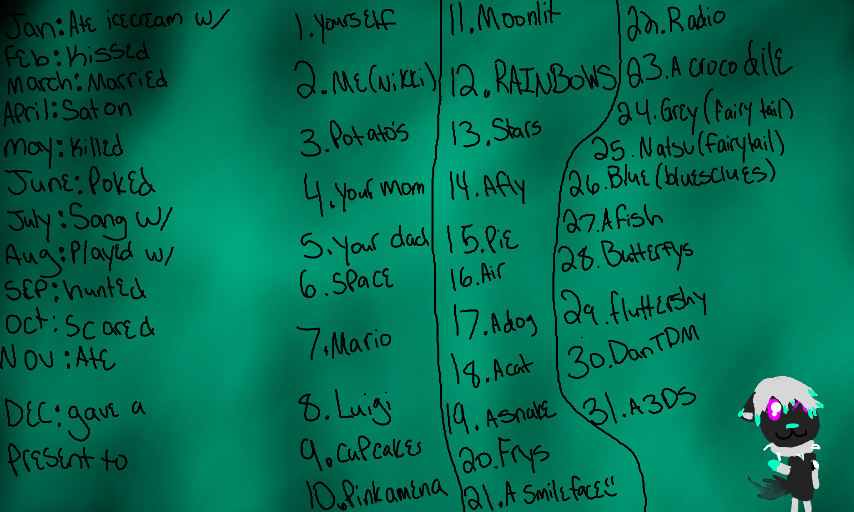 Jan: Ate icecream w/
Feb: Kissed
March: Married
April: Sat on
May: Killed
June: Poked
July: Sang w/
Aug: Played w/
Sep: hunted
Oct: Scared
Nov: Ate
DEC: gave a
present to
1. Yourself
2. Me (Nikki)
3. Potato's
4. Your mom
5. Your dad
6. Space
7. Mario
8. Luigi
9. Cupcakes
10. Pinkamena
11. Moonlit
12. RAINBOWS
13. Stars
14. A fly
15. Pie
16. Air
17. A dog
18. A cat
19. A snake
20. Frys
21. A smileface :)
22. Radio
23. A crocodile
24. Grey (fairy tail)
25. Natsu (fairytail)
26. Blue (bluesclues)
27. A fish
28. Butterfys
29. fluttershy
30. DanTDM
31. A 3DS